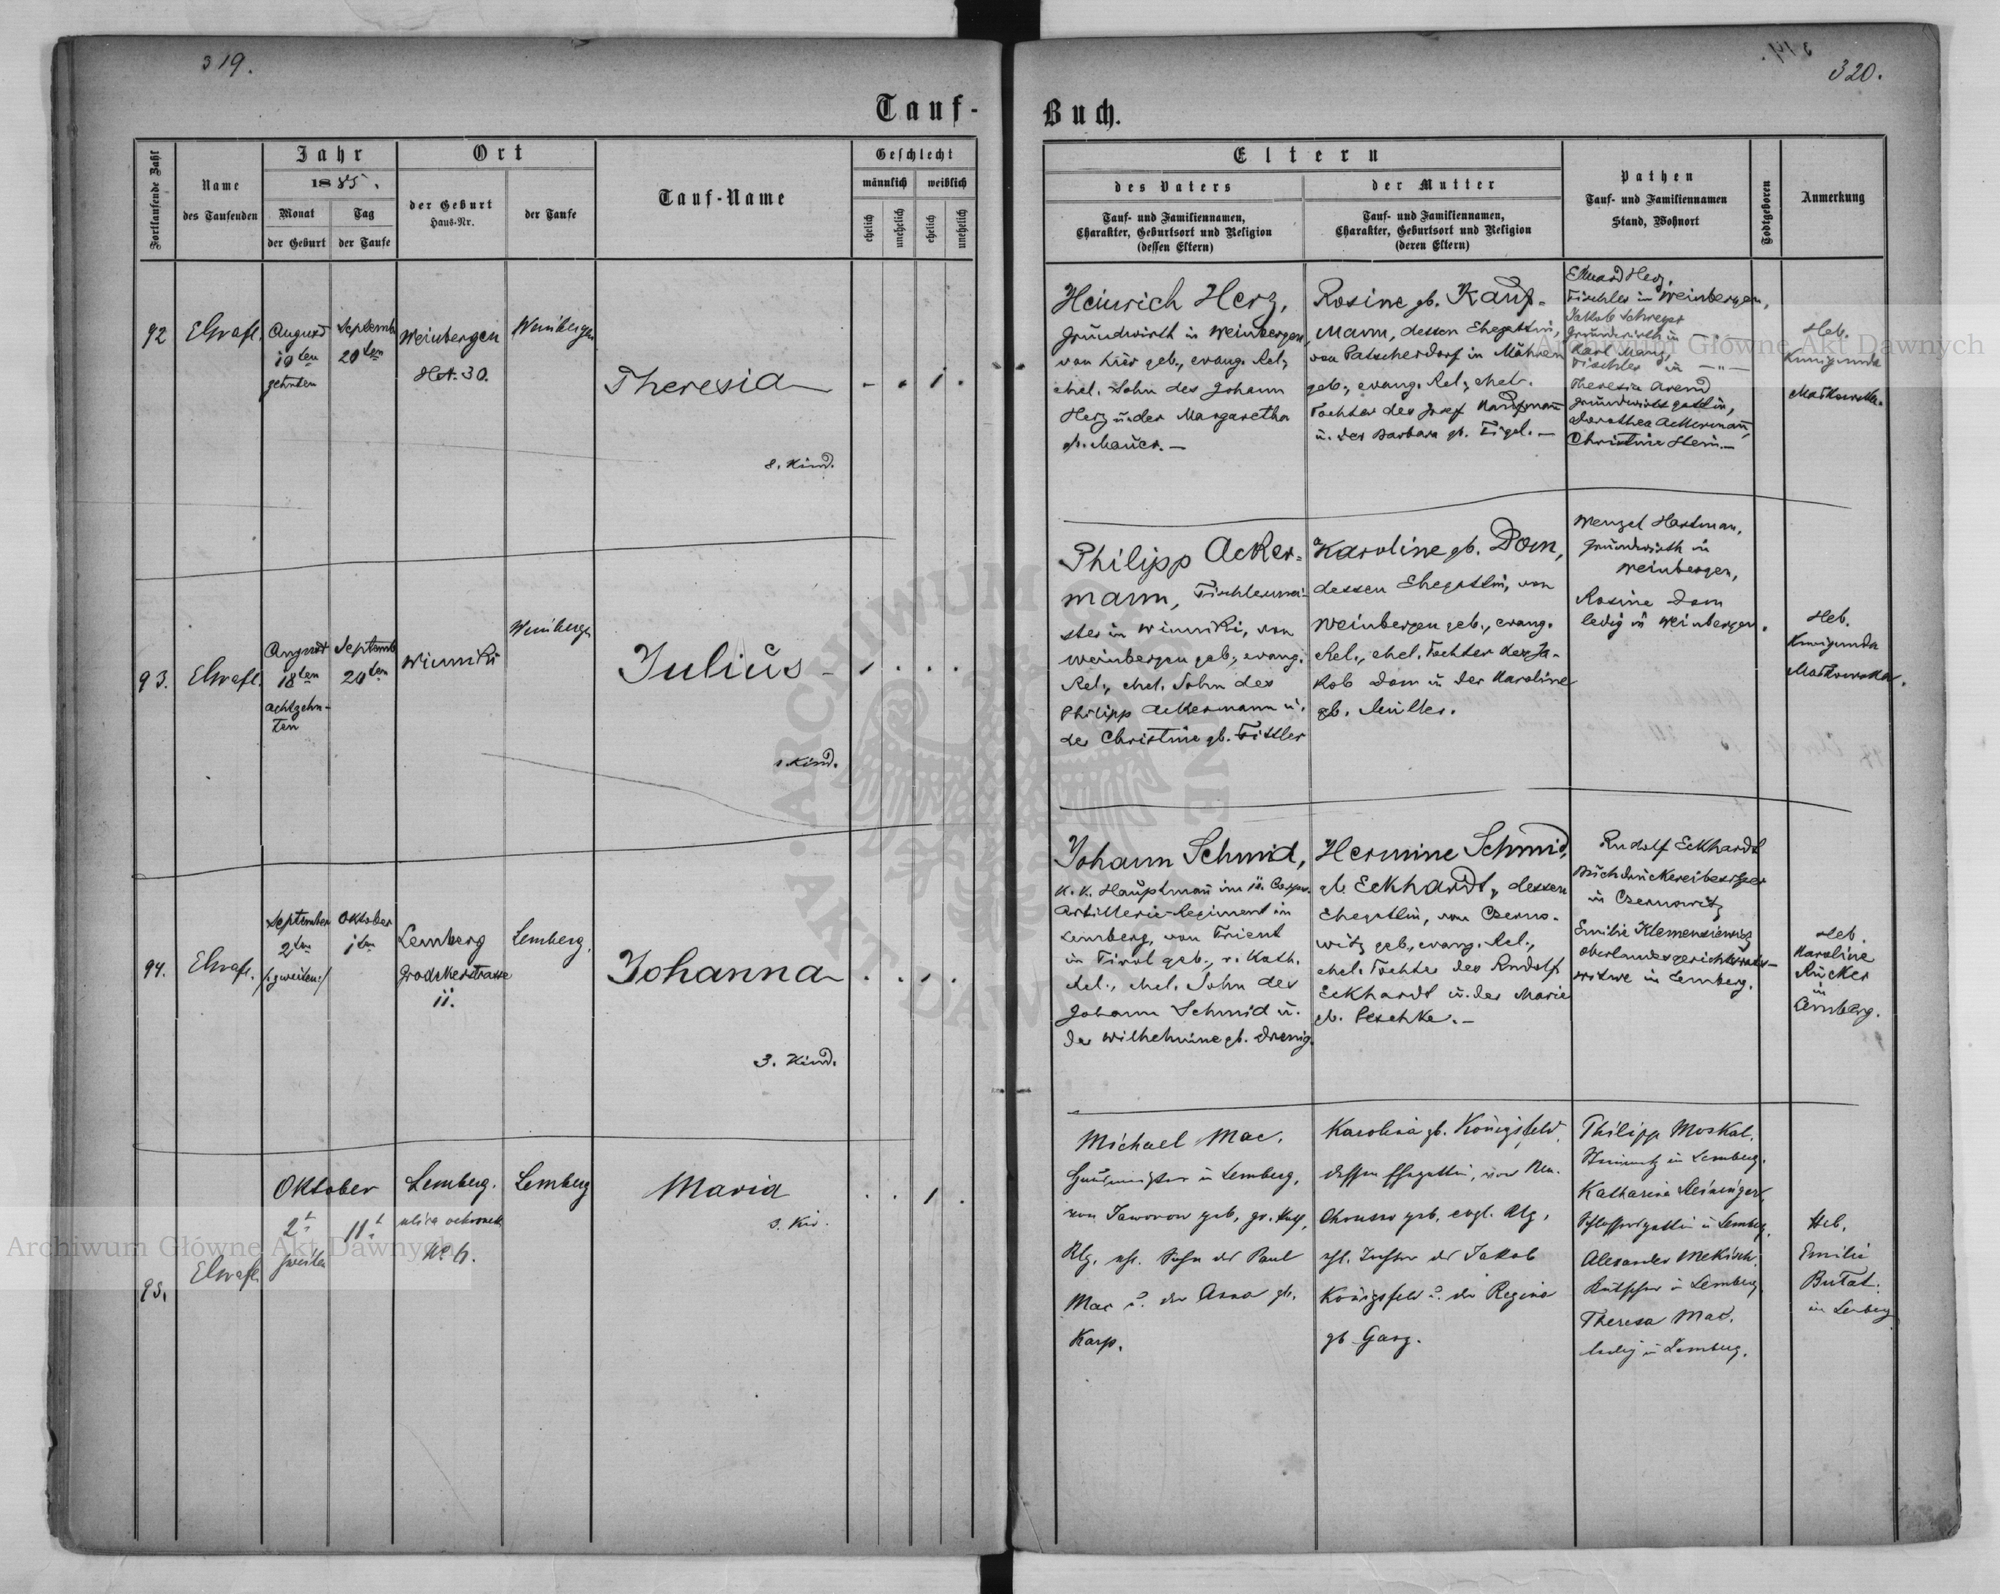 319.
320.
Tauf-
Buch.
Fortlaufende Zahl
Name
des Taufenden
Jahr
1885.
Monat
der Geburt
Tag
der Taufe
Ort
der Geburt
Haus-Nr.
der Taufe
Tauf-Name
Geschlecht
männlich
weiblich
ehelich
unehelich
ehelich
unehelich
Eltern
des Vaters
Tauf- und Familiennamen,
Charakter, Geburtsort und Religion
(dessen Eltern)
der Mutter
Tauf- und Familiennamen,
Charakter, Geburtsort und Religion
(deren Eltern)
Pathen
Tauf- und Familiennamen
Stand, Wohnort
Todtgeboren
Anmerkung
92
August
19ten
zehnten
Septemb
20ten
Weinbergen
30.
Weinbergen
Theresia
8. Kind.
Heinrich Herz,
Grundwirth in Weinbergen,
von hier geb., evang. Rel.,
ehel. Sohn des Johann
Herz u. der Margaretha
gb. Mauer. —
Rosine gb. Kauf-
mann, dessen Ehegattin,
von Patscherdorf in Mähren
geb., evang. Rel., ehel.
Tochter des Josef Kaufmann
u. der Barbara gb. Tigel. —
Eduard Herz,
Tischler in Weinbergen,
Jakob Schreyer
Grundwirth in
Karl Mang,
Tischler in — " —
Theresia Arend
Grundwirtsgattin,
Dorothea Ackermann,
Christine Stein. —
Heb.
Kunigunda
Matkowska.
93.
August
18ten
achtzehn-
ten
Septemb
20ten
Winniki
Weinbergen
Julius
1. Kind.
Philipp Acker-
mann, Tischlermei-
ster in Winniki, von
Weinbergen geb., evang.
Rel., ehel. Sohn des
Philipp Ackermann u.
der Christine gb. Tittler
Karoline gb. Dom,
dessen Ehegattin, von
Weinbergen geb., evang.
Rel., ehel. Tochter des Ja-
kob Dom u. der Karoline
gb. Müller.
Wenzel Hartman,
Grundwirth in
Weinbergen,
Rosine Dom
ledig in Weinbergen.
Heb.
Kunigunda
Matkowska.
94.
September
2ten
/:zweiten:/
Oktober
1ten
Lemberg
Grodekerstrasse
11.
Lemberg.
Johanna
3. Kind.
Johann Schmid,
k. k. Hauptmann im 11. Corps-
Artillerie-Regiment in
Lemberg, von Trient
in Tirol geb., r. kath.
Rel., ehel. Sohn des
Johann Schmid u.
der Wilhelmine gb.
Hermine Schmid,
gb Eckhardt, dessen
Ehegattin, von Czerno-
witz geb., evang. Rel.,
ehel. Tochter des Rudolf
Eckhardt u. der Marie
gb. Peschke. —
Rudolf Eckhardt
Buchdruckereibesitzer
in Czernowitz
Emilie Klemensiewicz
Oberlandesgerichtsrats-
witwe in Lemberg.
Heb.
Karoline
Rücker
in
Lemberg.
95.
Oktober
2t
zweiten
11t
Lemberg.
ulica ochronek
No 6.
Lemberg
Maria
3. Kind.
Michael Mac.
Hausmeister in Lemberg,
von Jaworow geb, gr. kath.
Rlg. ehl. Sohn des Paul
Mac u. der Anna gb.
Karp.
Karolina gb. Königsfeld,
dessen Ehegattin, von
geb. evgl. Rlg,
ehl. Tochter des Jakob
Königsfeld u. der Regina
gb Garg.
Philipp Moskal,
Steinmetz in Lemberg.
Katharina Reininger
Schlossersgattin in Lemberg.
Alexander
Kutscher in Lemberg
Theresa Mac.
ledig in Lemberg.
Heb.
Emilie
Butat.
in Lemberg
Archiwum Główne Akt Dawnych
Archiwum Główne Akt Dawnych